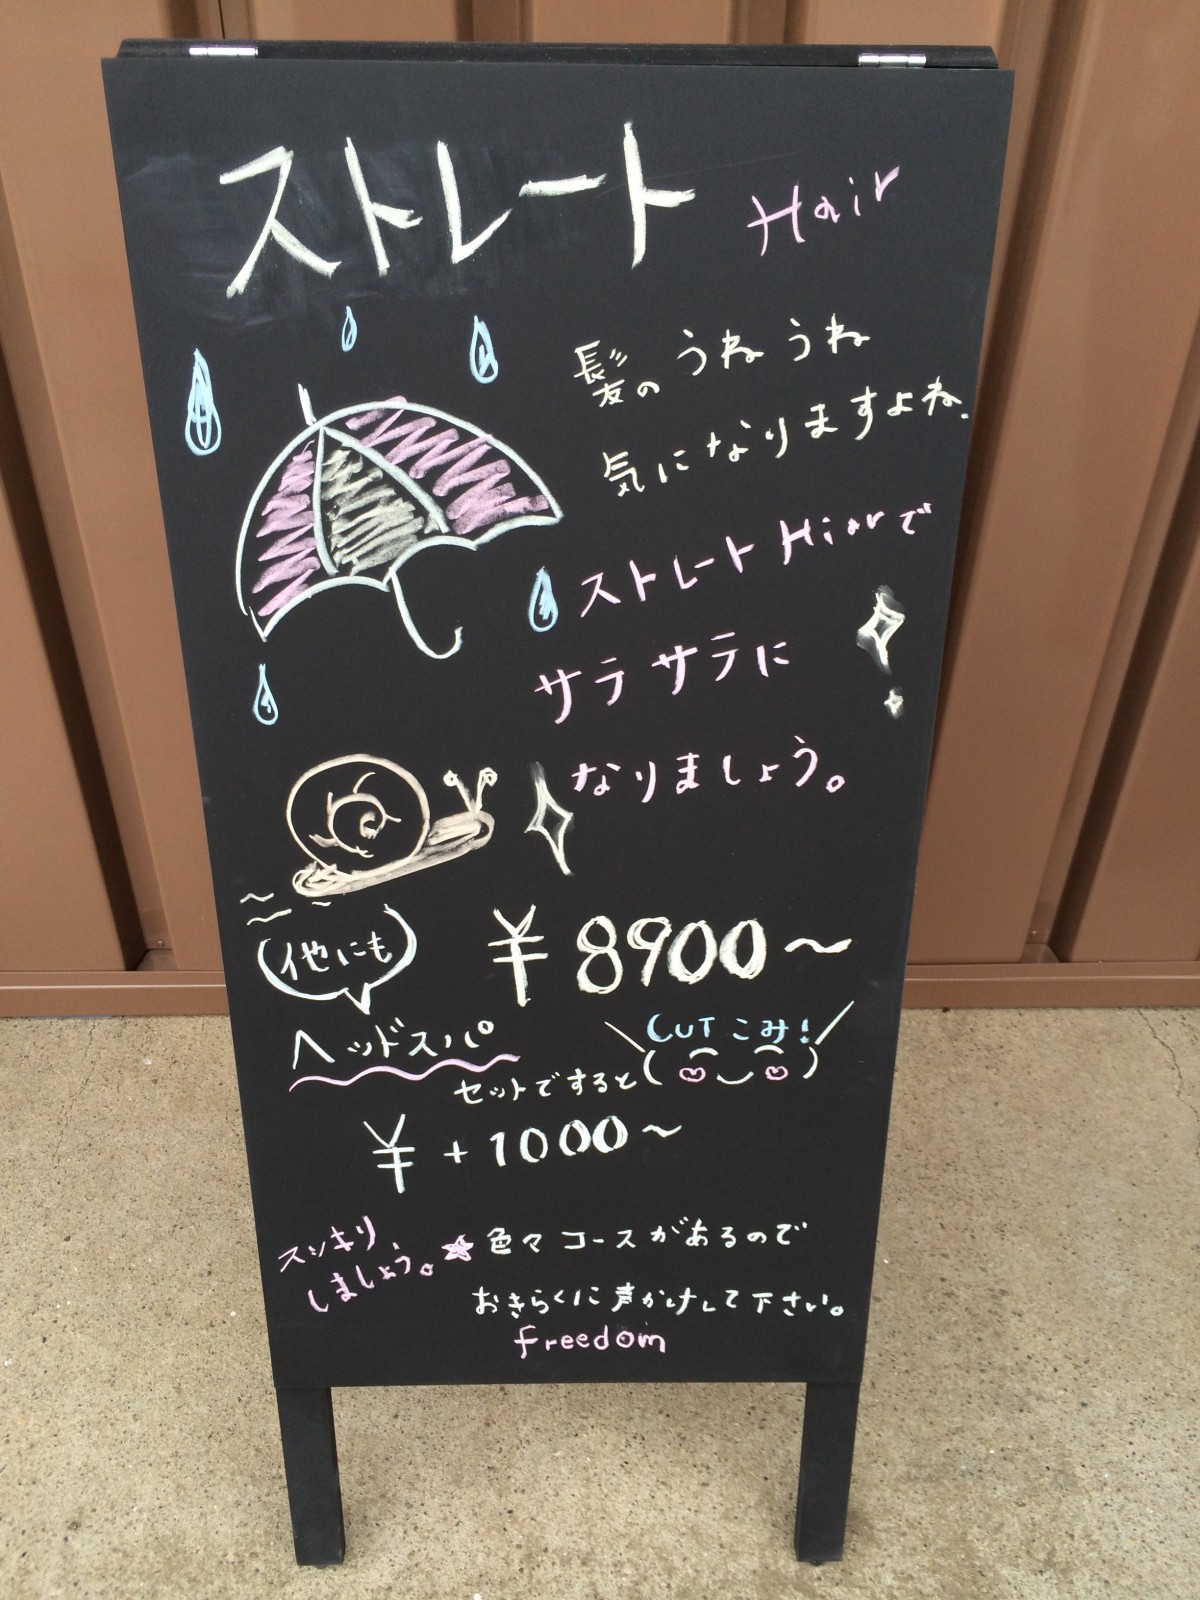 ストレート Hair
髪のうねうね
気になりますよね.
ストレートHiarで
サラサラに
なりましょう。
¥8900～
CUTこみ!
他にも
ヘッドスパ
セットですると
¥+1000～
スッキリ
しましょう。
色々コースがあるので
おきらくに声かけして下さい。
freedom